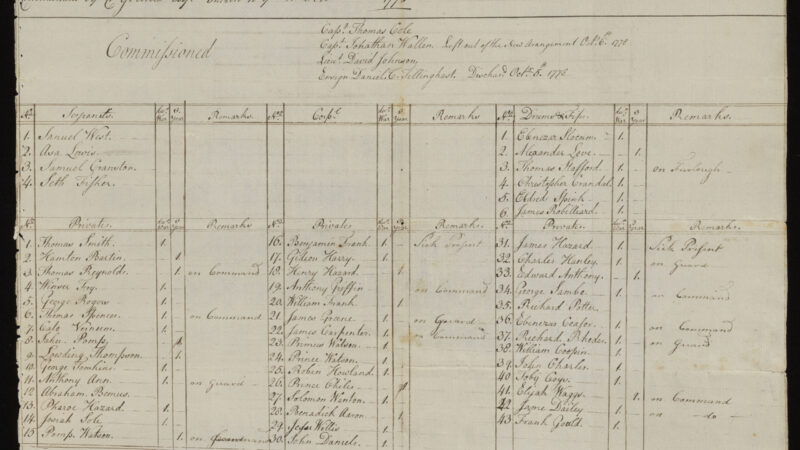 1778
Commissioned
Capt. Thomas Cole
Capt. Jonathan Wallen Left out of the New Arrangement Octr. 6th 1778
Lieut. David Johnson,
Ensign Daniel C. Tillinghast. Dischard Octr. 6th 1778
No. Serjeants Remarks No. Corpl. Remarks No. Drums & Fifs. Remarks
1. Samuel West. 1. Ebenezer Slocum 1.
2. Asa Lewis 2. Alexander Love 1.
3. Samuel Cranston 3. Thomas Stafford 1. on Furlough
4. Seth Fisher 4. Christopher Crandal 1.
5. Eldred Spink 1.
6. James Robilliard 1.
No. Privates Remarks No. Privates Remarks No. Privates Remarks
1. Thomas Smith 1. 16. Benjamin Frank 1. Sick Present 31. James Hazard 1. Sick Present
2. Hamton Barton 1. 17. Gideon Harry 1. 32. Charles Hanley 1. on Guard
3. Thomas Reynolds 1. on Command 18. Henry Hazard 1. 33. Edward Anthony 1.
4. 19. Anthony Griffin on Command 34. George Sambo 1. on Command
5. George Rogers 1. 20. William Frank 1. 35. Richard Potter 1.
6. Thomas Spencer 1. on Command 21. James Greene 1. on Guard 36. Ebenezer 1. on Command
7. Cato 1. 22. James Carpenter 1. on Command 37. Richard Rhodes 1. on Guard
8. John Pomp 23. Primus Watson 1. 38. William 1.
9. Thompson 1. 24. Prince Watson 1. 39. John Charles 1.
10. George Tomkins 1. 25. Robin Howland 1. 40. Toby 1.
11. Anthony Ann 1. on Guard 26. Prince Childs 41. Elijah Waggs 1. on Command
12. Abraham Bemus 27. Solomon Wanton 1. 42. Dailey 1. on do
13. Pharoe Hazard 1. 28. Benadick Aaron 1. 43. Frank Gould 1.
14. Josiah Sole 1. 29. Jesse Wellis 1.
15. Pomp Watson 1. on Command 30. John Daniels 1.